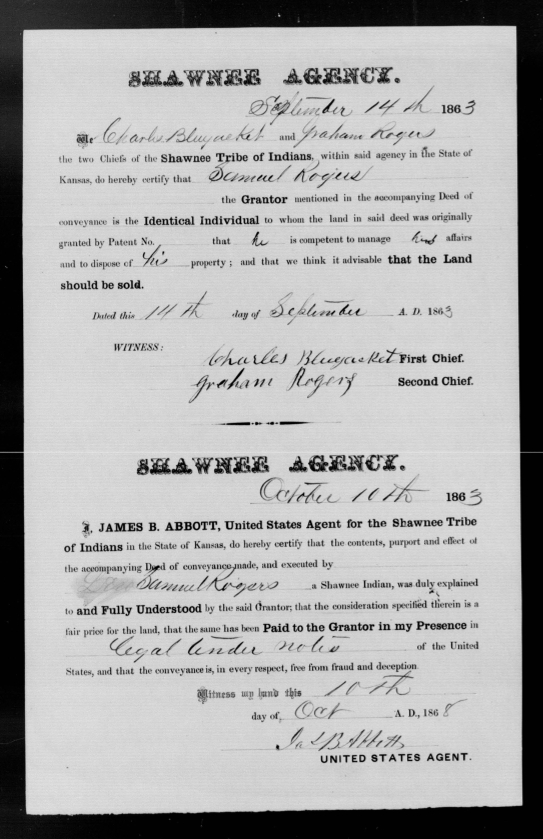 SHAWNEE AGENCY.
September 14th 1863
We Charles Bluejacket and Graham Rogers
the two Chiefs of the Shawnee Tribe of Indians, within said agency in the State of
Kansas, do hereby certify that Samuel Rogers
the Grantor mentioned in the accompanying Deed of
conveyance is the Identical Individual to whom the land in said deed was originally
granted by Patent No. that he is competent to manage his affairs
and to dispose of his property; and that we think it advisable that the Land
should be sold.
Dated this 14th day of September A. D. 1863
WITNESS:
Charles Bluejacket First Chief.
Graham Rogers Second Chief.
SHAWNEE AGENCY.
October 10th 1863
I, JAMES B. ABBOTT, United States Agent for the Shawnee Tribe
of Indians in the State of Kansas, do hereby certify that the contents, purport and effect of
the accompanying Deed of conveyance made, and executed by
Samuel Rogers a Shawnee Indian, was duly explained
to and Fully Understood by the said Grantor; that the consideration specified therein is a
fair price for the land, that the same has been Paid to the Grantor in my Presence in
legal tender notes of the United
States, and that the conveyance is, in every respect, free from fraud and deception
Witness my hand this 10th
day of, Oct A. D., 1868
Jas B Abbott
UNITED STATES AGENT.